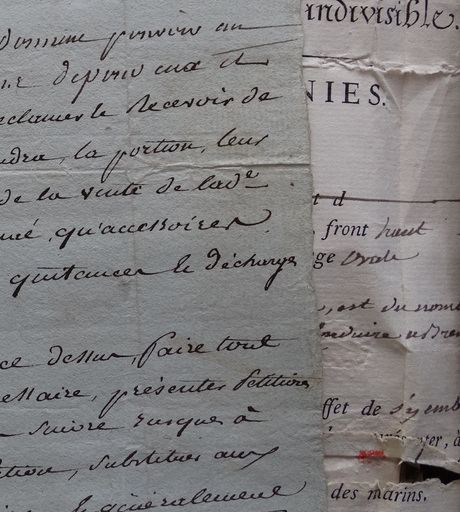 donnent pouvoir au
depuis eux et
reclamer le recevoir de
, la portion, leur
de la vente de lad.e
, qu'accessoires
quittances le décharges
ce dessus, faire tout
essaire, présenter petitions
suivre jusques à
tion, substituer aux
le généralement
indivisible.
NIES.
t d
, front haut
ge ovale
, est du nom
ffet de
er, à
des marins.